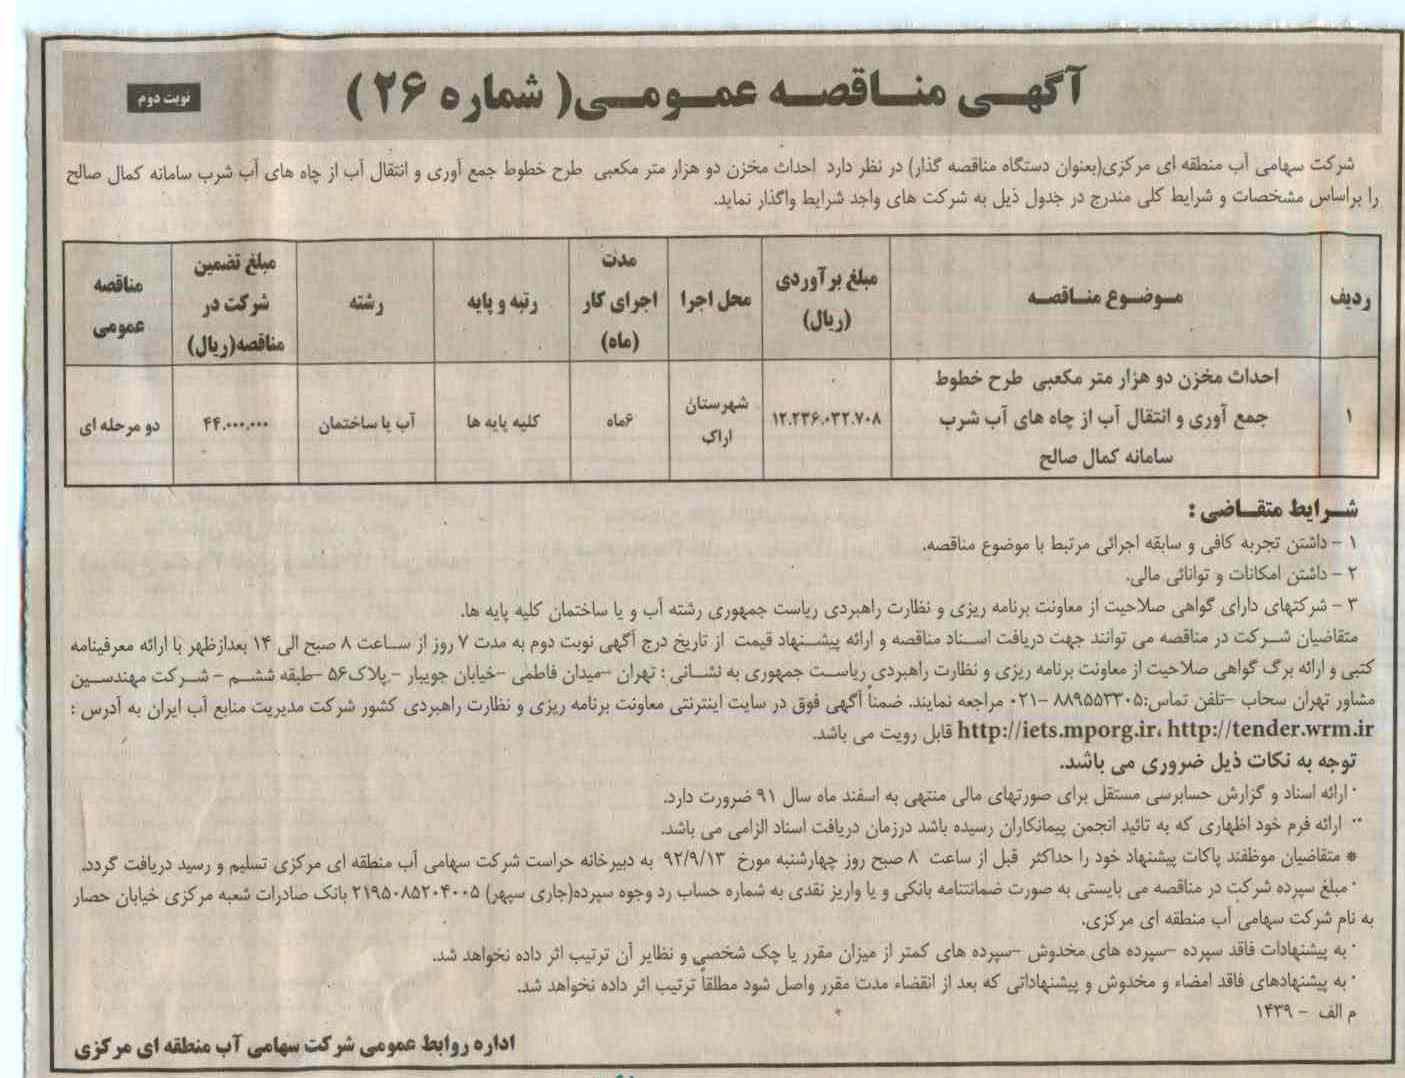 آگهی مناقصه عمومی( شماره ۲۶ )
نوبت دوم
شرکت سهامی آب منطقه ای مرکزی(بعنوان دستگاه مناقصه گذار) در نظر دارد احداث مخزن دو هزار متر مکعبی طرح خطوط جمع آوری و انتقال آب از چاه های آب شرب سامانه کمال صالح
را براساس مشخصات و شرایط کلی مندرج در جدول ذیل به شرکت های واجد شرایط واگذار نماید.
ردیف
موضوع مناقصه
مبلغ برآوردی
(ریال)
محل اجرا
مدت
اجرای کار
(ماه)
رتبه و پایه
رشته
مبلغ تضمین
شرکت در
مناقصه(ریال)
مناقصه
عمومی
۱
احداث مخزن دو هزار متر مکعبی طرح خطوط
جمع آوری و انتقال آب از چاه های آب شرب
سامانه کمال صالح
۱۲.۲۳۶.۰۳۲.۷۰۸
شهرستان
اراک
۶ماه
کلیه پایه ها
آب یا ساختمان
۴۴.۰۰۰.۰۰۰
دو مرحله ای
شرایط متقاضی :
۱ - داشتن تجربه کافی و سابقه اجرائی مرتبط با موضوع مناقصه.
۲ - داشتن امکانات و توانائی مالی.
۳ - شرکتهای دارای گواهی صلاحیت از معاونت برنامه ریزی و نظارت راهبردی ریاست جمهوری رشته آب و یا ساختمان کلیه پایه ها.
متقاضیان شرکت در مناقصه می توانند جهت دریافت اسناد مناقصه و ارائه پیشنهاد قیمت از تاریخ درج آگهی نوبت دوم به مدت ۷ روز از ساعت ۸ صبح الی ۱۴ بعدازظهر با ارائه معرفینامه
کتبی و ارائه برگ گواهی صلاحیت از معاونت برنامه ریزی و نظارت راهبردی ریاست جمهوری به نشانی : تهران -میدان فاطمی -خیابان جویبار - پلاک۵۶ -طبقه ششم - شرکت مهندسین
مشاور تهران سحاب -تلفن تماس:۸۸۹۵۵۳۳۰۵ -۰۲۱ مراجعه نمایند. ضمناً آگهی فوق در سایت اینترنتی معاونت برنامه ریزی و نظارت راهبردی کشور شرکت مدیریت منابع آب ایران به آدرس :
http://iets.mporg.ir، http://tender.wrm.ir قابل رویت می باشد.
توجه به نکات ذیل ضروری می باشد.
· ارائه اسناد و گزارش حسابرسی مستقل برای صورتهای مالی منتهی به اسفند ماه سال ۹۱ ضرورت دارد.
·· ارائه فرم خود اظهاری که به تائید انجمن پیمانکاران رسیده باشد درزمان دریافت اسناد الزامی می باشد.
* متقاضیان موظفند پاکات پیشنهاد خود را حداکثر قبل از ساعت ۸ صبح روز چهارشنبه مورخ ۹۲/۹/۱۳ به دبیرخانه حراست شرکت سهامی آب منطقه ای مرکزی تسلیم و رسید دریافت گردد.
· مبلغ سپرده شرکت در مناقصه می بایستی به صورت ضمانتنامه بانکی و یا واریز نقدی به شماره حساب رد وجوه سپرده(جاری سپهر) ۲۱۹۵۰۸۵۲۰۴۰۰۵ بانک صادرات شعبه مرکزی خیابان حصار
به نام شرکت سهامی آب منطقه ای مرکزی.
· به پیشنهادات فاقد سپرده -سپرده های مخدوش -سپرده های کمتر از میزان مقرر یا چک شخصی و نظایر آن ترتیب اثر داده نخواهد شد.
· به پیشنهادهای فاقد امضاء و مخدوش و پیشنهاداتی که بعد از انقضاء مدت مقرر واصل شود مطلقاً ترتیب اثر داده نخواهد شد.
م الف - ۱۴۳۹
اداره روابط عمومی شرکت سهامی آب منطقه ای مرکزی